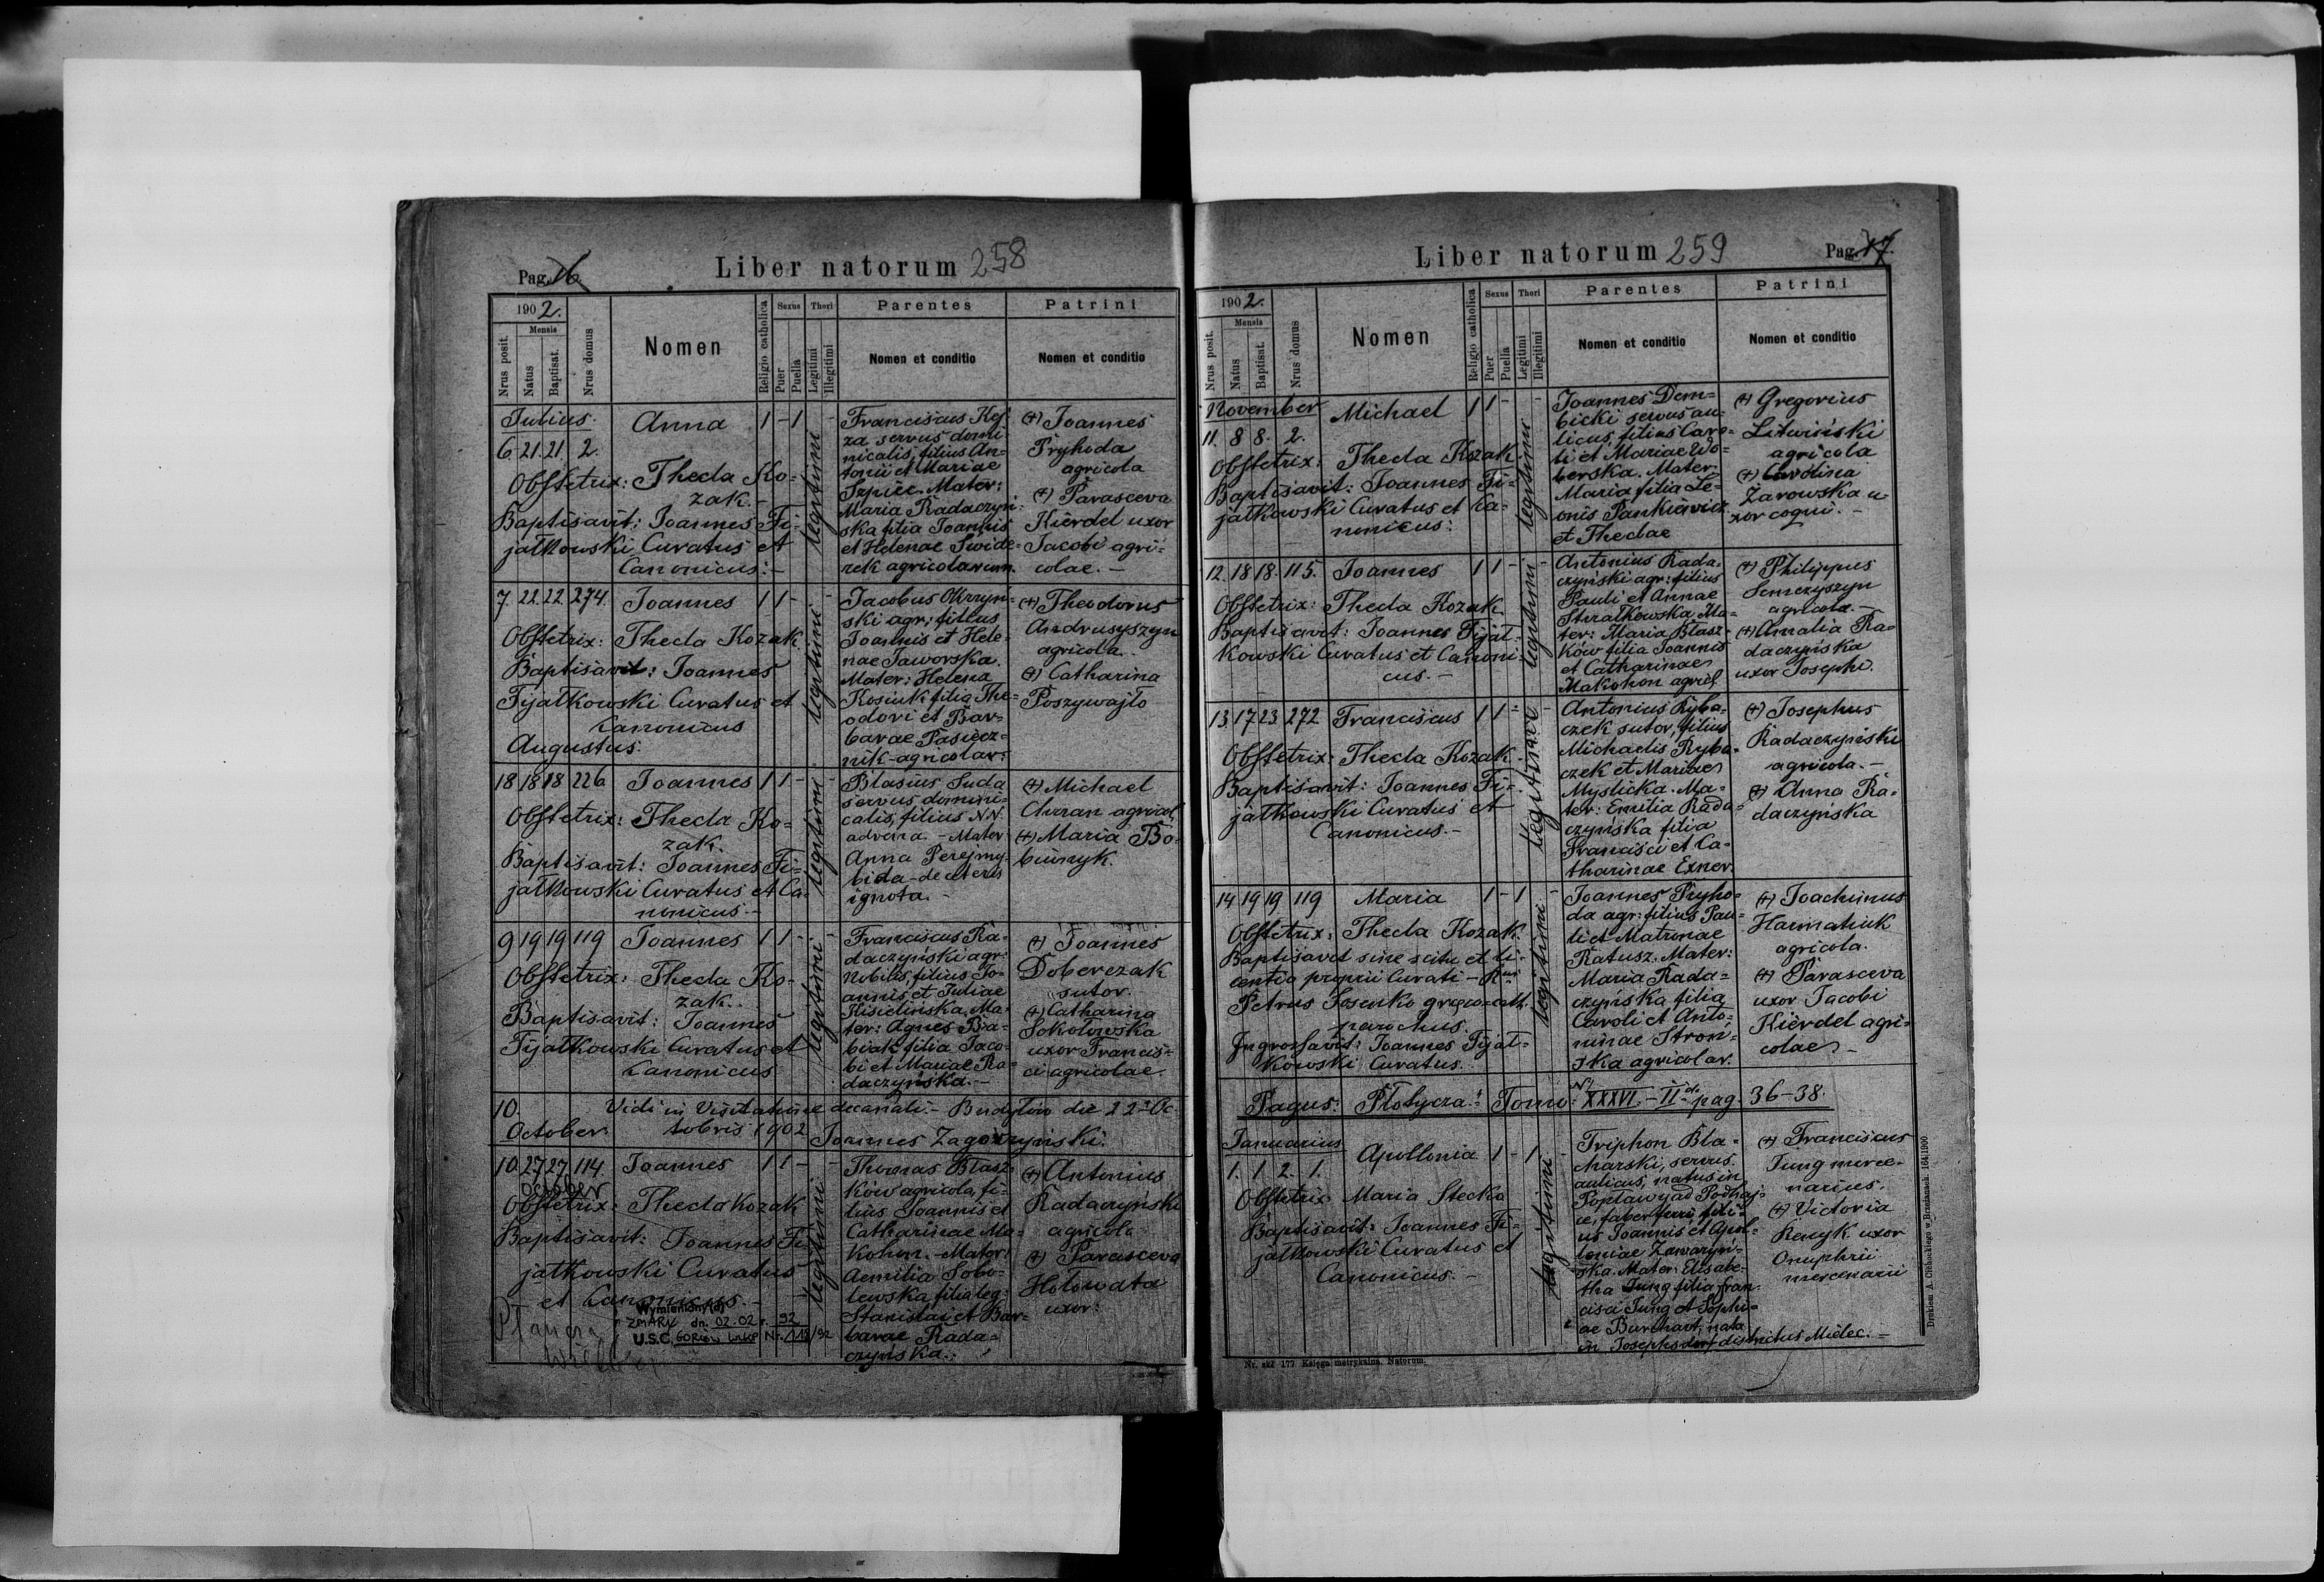 Pag. 16
Liber natorum 258
1902.
Mensis
Nrus posit.
Natus
Baptisat.
Nrus domus
Nomen
Religio catholica
Sexus
Puer
Puella
Thori
Legitimi
Illegitimi
Parentes
Nomen et conditio
Patrini
Nomen et conditio
Julius.
6. 21. 21. 2.
Anna 1 - 1 -
legitimi
Obstetrix: Thecla Ko=
zak.-
Baptisavit: Joannes Fi=
jałkowski Curatus et
Canonicus:-
Franciscus Kej=
za servus domi=
nicalis, filius An=
tonii et Mariae
Szpiec. Mater:
Maria Radaczyń=
ska filia Joannis
et Helenae Swide=
rek agricolarum.
(+) Joannes
Pryhoda
agricola
(+) Parasceva
Kierdel uxor
Jacobi agri=
colae.-
7. 22. 22. 274. Joannes 1 1 -
legitimi
Obstetrix: Thecla Kozak
Baptisavit: Joannes
Fijałkowski Curatus et
Canonicus
Jacobus Okrzyń=
ski agr: filius
Joannis et Hele=
nae Jaworska.
Mater: Helena
Kosiuk filia The=
odori et Bar=
barae Pasiecz=
nik-agricolar:
(+) Theodorus
Andrusyszyn
agricola.
(+) Catharina
Poszywajło
Augustus:
18 18 18 226 Joannes 1 1 -
legitimi
Obstetrix: Thecla Ko=
zak.
Baptisavit: Joannes Fi=
jałkowski Curatus et Ca=
nonicus.-
Blasius Suda
servus domini=
calis, filius N.N.
advena.- Mater
Anna Perejmy=
bida-de ceteris
ignota.-
(+) Michael
Churan agricol.
(+) Maria Bo=
9 19 19 119 Joannes 1 1 -
legitimi
Obstetrix: Thecla Ko=
zak..
Baptisavit: Joannes
Fijałkowski Curatus et
Canonicus
Franciscus Ra=
daczyński agr:
nobilis, filius Jo=
annis, et Juliae
Kisielińska, Ma=
ter: Agnes Ba=
biak filia Jaco=
bi et Mariae Ra=
daczyńska.-
(+) Joannes
Doberczak
sutor.
(+) Catharina
Sokołowska
uxor Francis=
ci agricolae.
10.
October:
Vidi in Visitatione decanali.- Budyłów die 22 Oc=
tobris 1902
Joannes Zagórzyński.
10. 27 27 114. Joannes 1 1 - -
October
legitimi
Obstetrix: Thecla Kozak
Baptisavit: Joannes Fi=
jałkowski Curatus
et Canonicus.-
Thomas Błasz=
ków agricola, fi=
lius Joannis et
Catharinae Ma=
kohon.-Mater:
Aemilia Sobo=
lewska filia leg:
Stanislai et Bar=
barae Rada=
czyńska.:
(+) Antonius
Radaczyński
agricola
(+) Parasceva
Hołowata
uxor:
Wymieniony(a)
ZMARŁ dn. 02.02. 92
U.S.C. GORZÓW WLKP Nr. 113/92
Liber natorum 259
Pag. 17.
1902.
Mensis
Nrus posit.
Natus
Baptisat.
Nrus domus
Nomen
Religio catholica
Sexus
Puer
Puella
Thori
Legitimi
Illegitimi
Parentes
Nomen et conditio
Patrini
Nomen et conditio
November
11. 8 8. 2.
Michael 1 1 - -
legitimi
Obstetrix: Thecla Kozak
Baptisavit: Joannes Fi=
jałkowski Curatus et Ca=
nonicus:
Joannes Dem=
bicki servus au=
licus, filius Caro=
li et Mariae Wo=
berska. Mater:
Maria filia Le=
onis Pankiewicz
et Theclae
(+) Gregorius
Litwiński
agricola
(+) Carolina
Żarowska u=
xor coqui.-
12. 18 18. 115. Joannes 1 1 - -
legitimi
Obstetrix: Thecla Kozak
Baptisavit: Joannes Fijał=
kowski Curatus et Canoni=
cus.-
Antonius Rada=
czyński agr: filius
Pauli et Annae
Strzałkowska. Ma=
ter: Maria Błasz=
ków filia Joannis
et Catharinae
Makohon agricol.
(+) Philippus
Semczyszyn
agricola.-
(+) Amalia Ra=
daczyńska
uxor Josephi.
13. 17 23 272 Franciscus 1 1 - -
legitimi
Obstetrix: Thecla Kozak.
Baptisavit: Joannes Fi=
jałkowski Curatus et
Canonicus.-
Antonius Ryba=
czek sutor, filius
Michaelis Ryba=
czek et Mariae
Myslicka. Ma=
ter: Emilia Rada=
czyńska filia
Francisci et Ca=
tharinae Exner.
(+) Josephus
Radaczyński
agricola.-
(+) Anna Ra=
daczyńska
14 19 19 119 Maria 1 - 1 -
legitimi
Obstetrix: Thecla Kozak.
Baptisavit sine scitu et li=
centia proprii Curati-Rmi
Petrus Sosenko graeco-cath.
parochus.
Ingrossavit: Joannes Fijał=
kowski Curatus.
Joannes Pryho=
da agr: filius Pau=
li et Matronae
Ratusz. Mater:
Maria Rada=
czyńska filia
Caroli et Anto=
ninae Stron=
ska agricolar.
(+) Joachimus
Harmatiuk
agricola.
(+) Parasceva
uxor Jacobi
Kierdel agri=
colae -
Pagus: Płotycza: Tomo: No XXXVI.-II do pag. 36-38.
Januarius
1. 1. 2. 1.
Apollonia 1 - 1 -
legitimi
Obstetrix Maria Stecko
Baptisavit: Joannes Fi=
jałkowski Curatus et
Canonicus.-
Triphon Bla=
charski, servus
aulicus, natus in
Popławy ad Podhaj=
ce, faber ferri, fili=
us Joannis et Apol=
loniae Zawaryń=
ska. Mater: Elisabe=
tha Jung filia Fran=
cisci Jung et Sophi=
ae Burchart, nata
in Josephsdorf districtus Mielec.-
(+) Franciscus
Jung merce=
narius.
(+) Victoria
uxor
Onuphrii
mercenarii
Nr. skł 177 Księga metrykalna. Natorum.
Drukiem A. Cichockiego w Brzeżanach. 164|1900